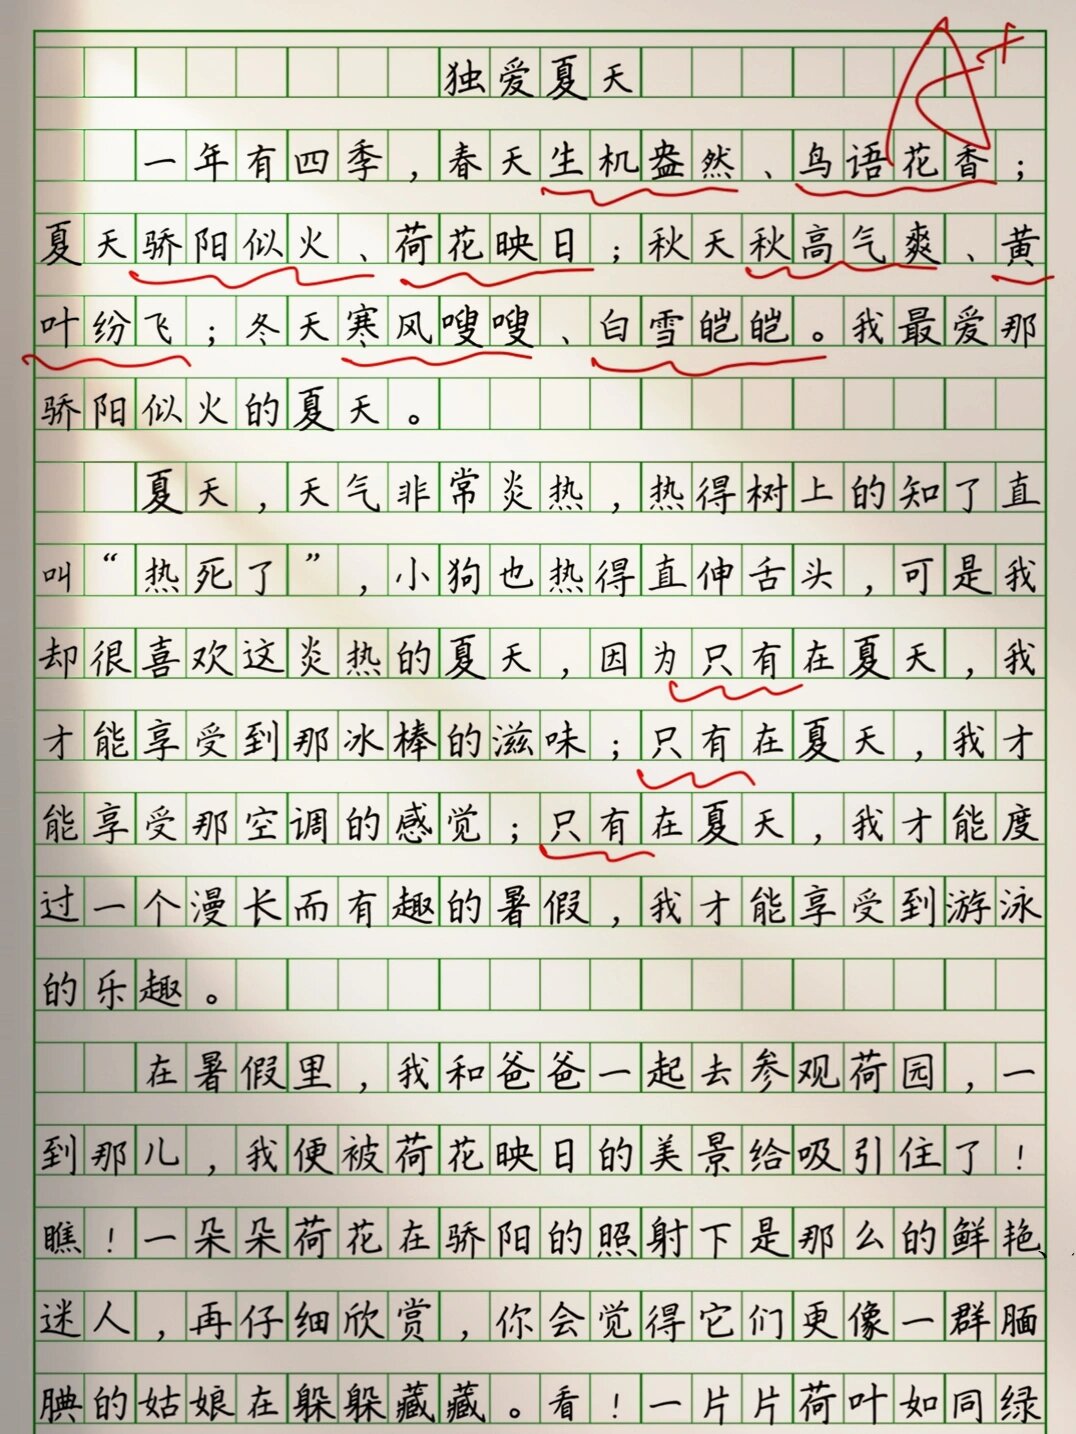 独爱夏天
A+
一年有四季，春天生机盎然、鸟语花香；
夏天骄阳似火、荷花映日；秋天秋高气爽、黄
叶纷飞；冬天寒风嗖嗖、白雪皑皑。我最爱那
骄阳似火的夏天。
夏天，天气非常炎热，热得树上的知了直
叫“热死了”，小狗也热得直伸舌头，可是我
却很喜欢这炎热的夏天，因为只有在夏天，我
才能享受到那冰棒的滋味；只有在夏天，我才
能享受那空调的感觉；只有在夏天，我才能度
过一个漫长而有趣的暑假，我才能享受到游泳
的乐趣。
在暑假里，我和爸爸一起去参观荷园，一
到那儿，我便被荷花映日的美景给吸引住了！
瞧！一朵朵荷花在骄阳的照射下是那么的鲜艳、
迷人，再仔细欣赏，你会觉得它们更像一群腼
腆的姑娘在躲躲藏藏。看！一片片荷叶如同绿